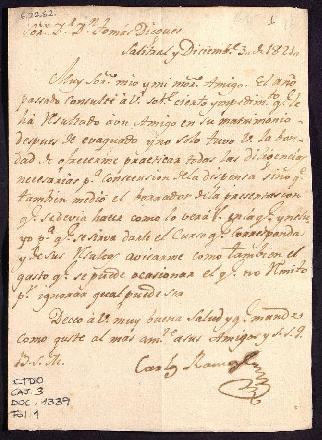 6.22.62.
1
Sor. Dr. Dn. Tomás Dieguez
Salitral y Diciembe. 3. de 1821
Muy Sor. mio y mi mor. Amigo. El año
pasado consulté a V. sobe. cierto impedimto. qe.
ha resultado a un Amigo en su matrimonio
despues de evaquado y no solo tuvo de la bon-
dad de ofrecerme practicar todas las diligencias
necesarias pa. consecusion de la dispensa sino qe.
tambien me dió el borrador de la presentacion
qe. se devia hacer como lo verá
y pa. qe. se sirva darle el Curso qe. corresponda
y de sus resultas avisarme como tambien el
gasto qe. se puede ocasionar el qe. no remito
pr. ignorar qual puede ser
Deceo a V. muy buena Salud y qe. mande
como guste al mas amte. a sus Amigos y S. S. q.
B. S. M.
Carlos
CTDO
CAJ. 3
DOC. 1339
Fol. 1